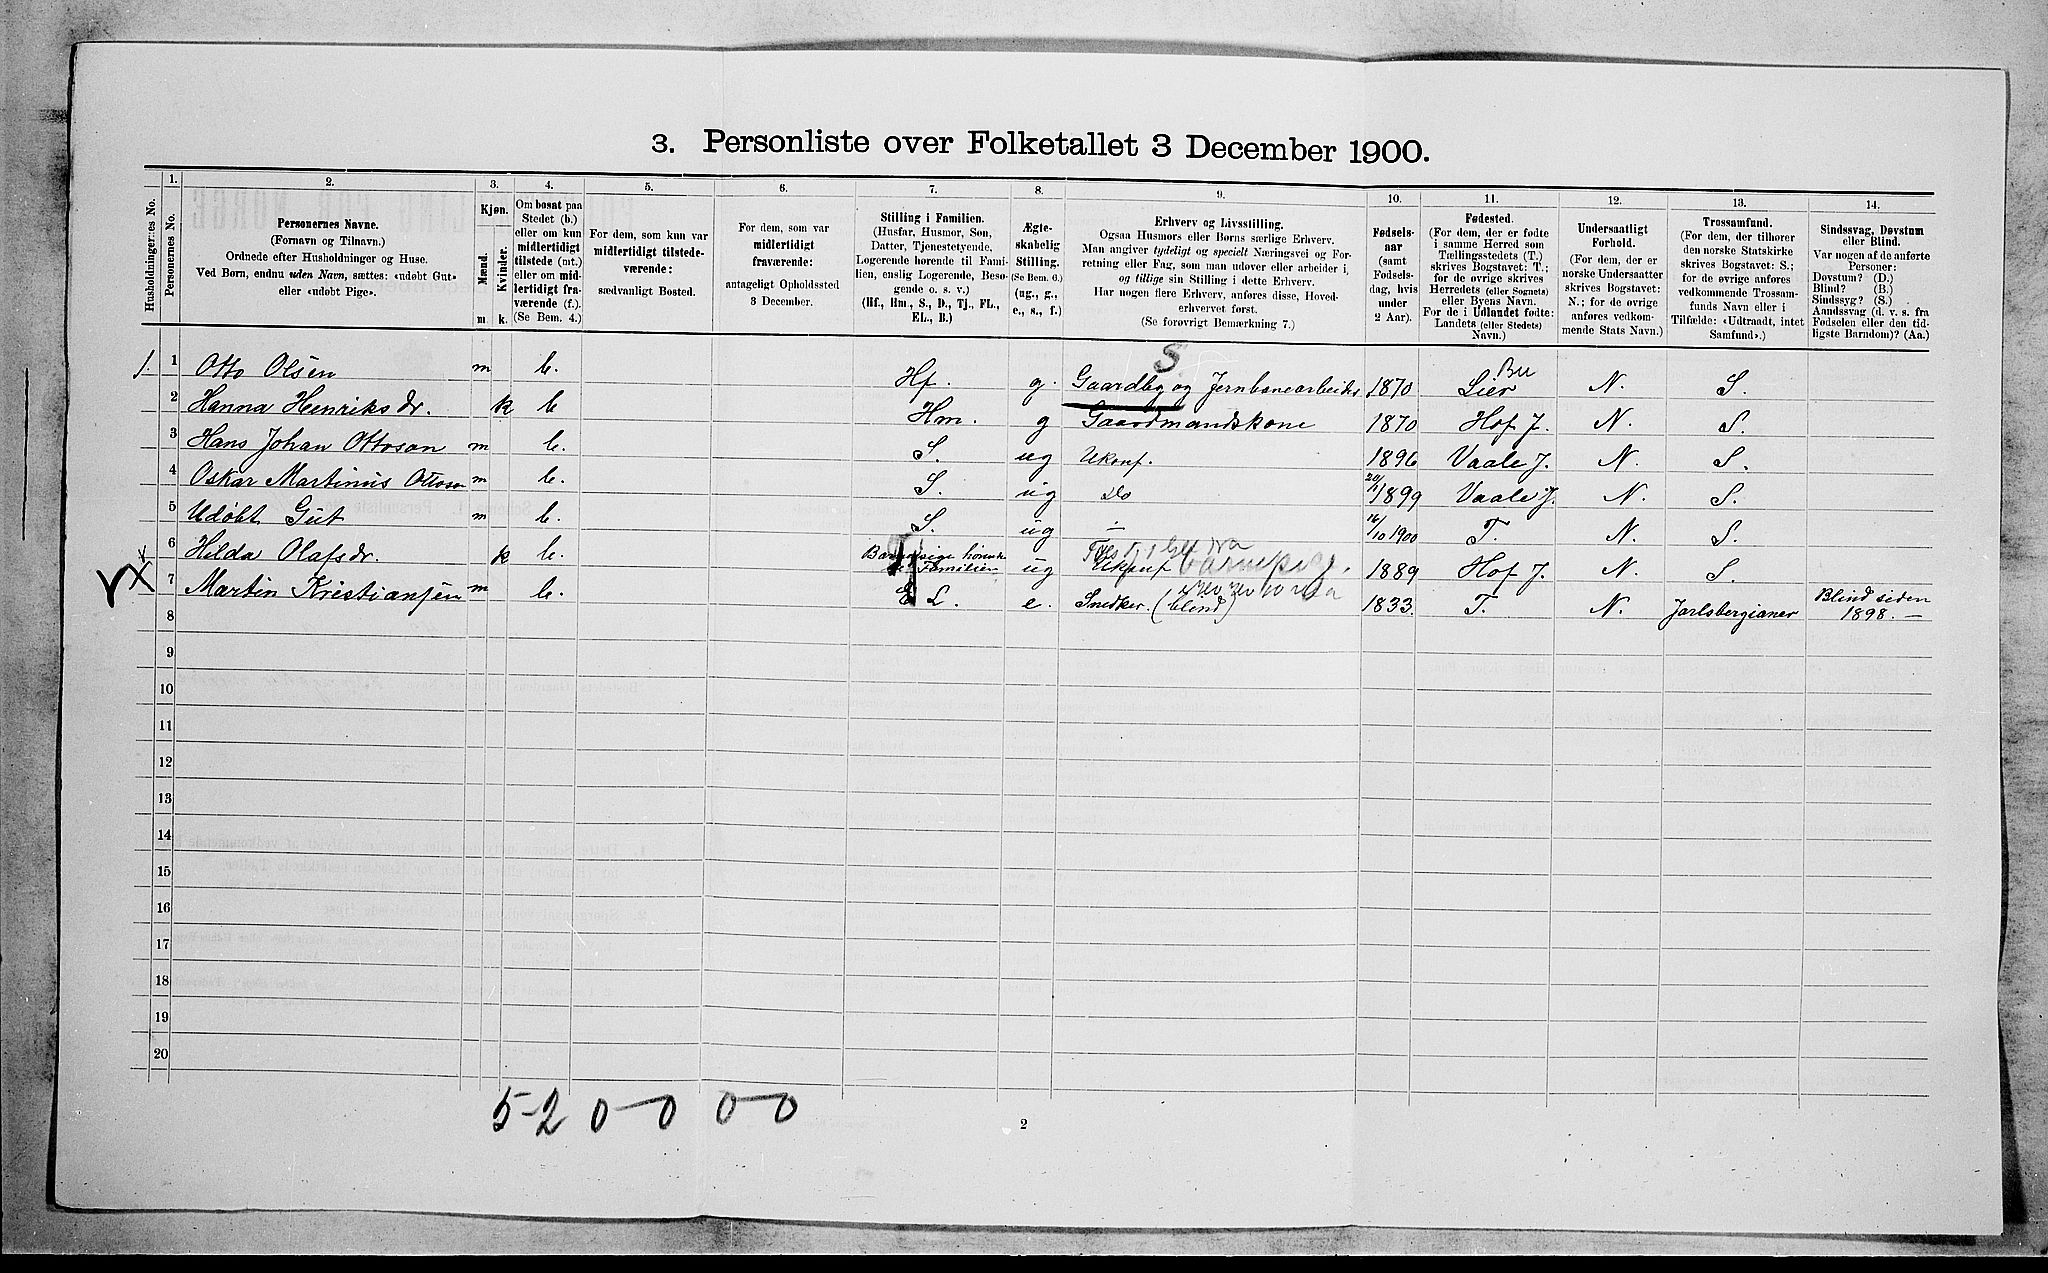 3. Personliste over Folketallet 3 December 1900.
Husholdningernes No.
1. Personernes No.
2. Personernes Navne.
(Fornavn og Tilnavn.)
Ordnede efter Husholdninger og Huse.
Ved Børn, endnu uden Navn, sættes: «udøbt Gut»
eller «udøbt Pige».
3. Kjøn.
Mænd. Kvinder.
m k.
4. Om bosat paa
Stedet (b.)
eller om kun
midlertidigt
tilstede (mt.)
eller om mid-
lertidigt fra-
værende (f.).
(Se Bem. 4.)
5. For dem, som kun var
midlertidigt tilstede-
værende:
sædvanligt Bosted.
6. For dem, som var
midlertidigt
fraværende:
antageligt Opholdssted
3 December.
7. Stilling i Familien.
(Husfar, Husmor, Søn,
Datter, Tjenestetyende,
Logerende hørende til Fami-
lien, enslig Logerende, Besø-
gende o. s. v.)
(Hf., Hm., S., D., Tj., FL.,
EL., B.)
8. Ægte-
skabelig
Stilling.
(Se Bem. 6.)
(ug., g.,
e., s., f.)
9. Erhverv og Livsstilling.
Ogsaa Husmors eller Børns særlige Erhverv.
Man angiver tydeligt og specielt Næringsvei og For-
retning eller Fag, som man udøver eller arbeider i,
og tillige sin Stilling i dette Erhverv.
Har nogen flere Erhverv, anføres disse, Hoved-
erhvervet først.
(Se forøvrigt Bemærkning 7.)
10. Fødsels-
aar
(samt
Fødsels-
dag, hvis
under
2 Aar).
11. Fødested.
(For dem, der er fødte
i samme Herred som
Tællingsstedets (T.)
skrives Bogstavet: T.;
for de øvrige skrives
Herredets (eller Sognets)
eller Byens Navn.
For de i Udlandet fødte:
Landets (eller Stedets)
Navn.)
12. Undersaatligt
Forhold.
(For dem, der er
norske Undersaatter
skrives Bogstavet:
N.; for de øvrige
anføres vedkom-
mende Stats Navn.)
13. Trossamfund.
(For dem, der tilhører
den norske Statskirke
skrives Bogstavet: S.;
for de øvrige anføres
vedkommende Trossam-
funds Navn eller i
Tilfælde: «Udtraadt, intet
Samfund».)
14. Sindssvag, Døvstum
eller Blind.
Var nogen af de anførte
Personer:
Døvstum? (D.)
Blind? (B.)
Sindssyg? (S.)
Aandssvag (d. v. s. fra
Fødselen eller den tid-
ligste Barndom)? (Aa.)
S
Bu
1. 1 Otto Olsen m b. Hf. g. Gaardbg og Jernbanearbeider 1870 Lier N. S.
2 Hanna Henriksdr. k b Hm. g Gaardmandskone 1870 Hof J. N. S.
3 Hans Johan Ottosen m b. S. ug Ukonf. 1896 Vaale J. N. S.
4 Oskar Martinus Ottosen m b. S. ug Do 1899 Vaale J. N. S.
5 Udøbt Gut m b. S. ug ÷ 16/10 1900 T. N. S.
6 Hilda Olafsdr. k b. Tj Familien ug Ukonf Barnepige. 1889 Hof J. N. S.
7 Martin Kristiansen m b. E L. e. Snedker. (blind) 1833. T. N. Jarlsbergianer Blind siden
1898. —
8
9
10
11
12
13
14
15
16
17
18
19
20
5-2 0-0 0-0
2